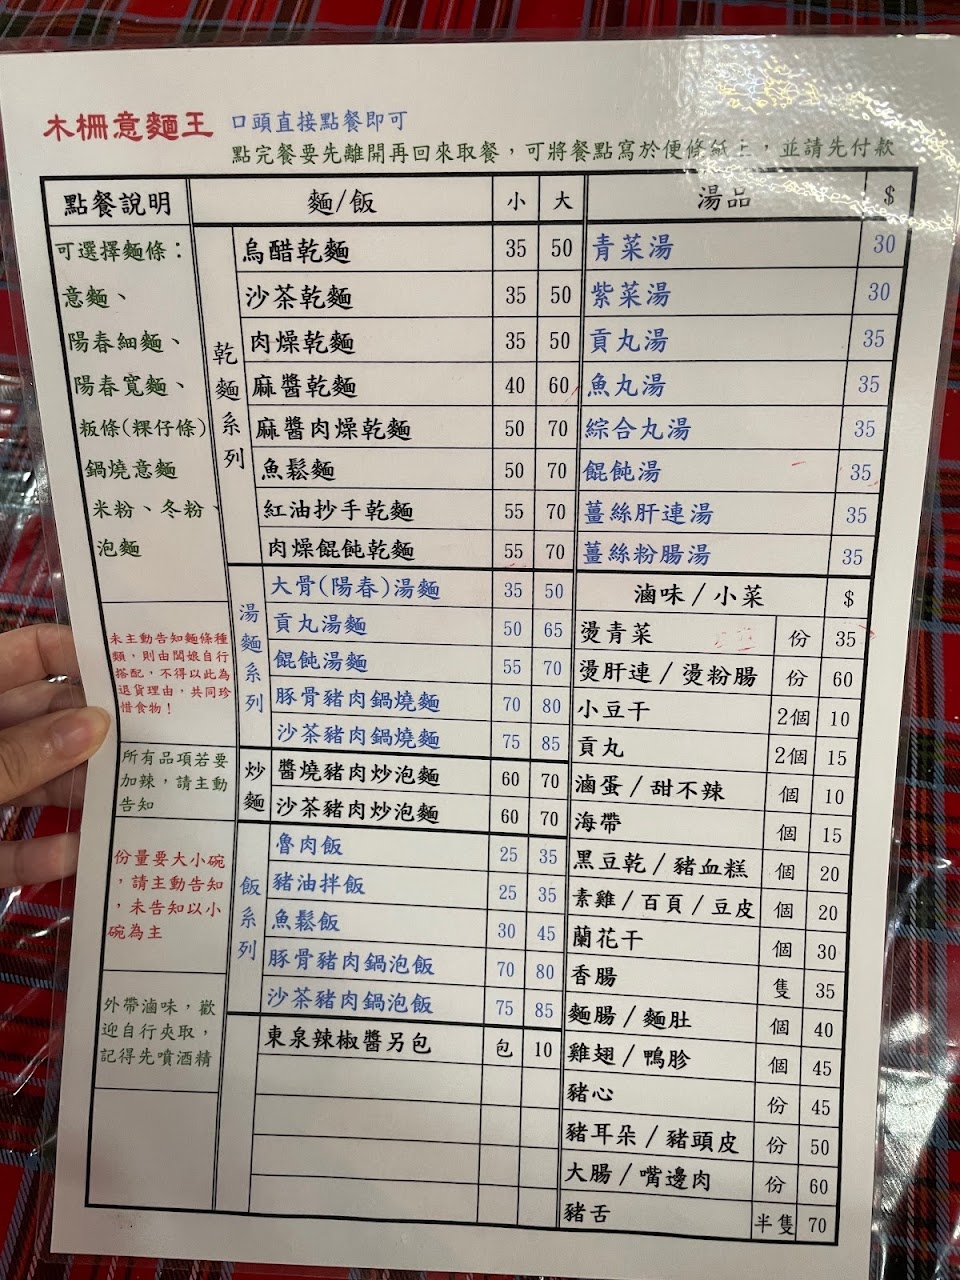 木柵意麵王 口頭直接點餐即可
點完餐要先離開再回來取餐，可將餐點寫於便條紙上，並請先付款
點餐說明
可選擇麵條：
意麵、
陽春細麵、
陽春寬麵、
粄條(粿仔條)
鍋燒意麵
米粉、冬粉、
泡麵
未主動告知麵條種
類，則由闆娘自行
搭配，不得以此為
退貨理由，共同珍
惜食物！
所有品項若要
加辣，請主動
告知
份量要大小碗
，請主動告知
，未告知以小
碗為主
外帶滷味，歡
迎自行夾取，
記得先噴酒精
麵/飯 小 大
乾麵系列
烏醋乾麵 35 50
沙茶乾麵 35 50
肉燥乾麵 35 50
麻醬乾麵 40 60
麻醬肉燥乾麵 50 70
魚鬆麵 50 70
紅油抄手乾麵 55 70
肉燥餛飩乾麵 55 70
湯麵系列
大骨(陽春)湯麵 35 50
貢丸湯麵 50 65
餛飩湯麵 55 70
豚骨豬肉鍋燒麵 70 80
沙茶豬肉鍋燒麵 75 85
炒麵
醬燒豬肉炒泡麵 60 70
沙茶豬肉炒泡麵 60 70
飯系列
魯肉飯 25 35
豬油拌飯 25 35
魚鬆飯 30 45
豚骨豬肉鍋泡飯 70 80
沙茶豬肉鍋泡飯 75 85
東泉辣椒醬另包 包 10
湯品 $
青菜湯 30
紫菜湯 30
貢丸湯 35
魚丸湯 35
綜合丸湯 35
餛飩湯 35
薑絲肝連湯 35
薑絲粉腸湯 35
滷味/小菜 $
燙青菜 份 35
燙肝連/燙粉腸 份 60
小豆干 2個 10
貢丸 2個 15
滷蛋/甜不辣 個 10
海帶 個 15
黑豆乾/豬血糕 個 20
素雞/百頁/豆皮 個 20
蘭花干 個 30
香腸 隻 35
麵腸/麵肚 個 40
雞翅/鴨胗 個 45
豬心 份 45
豬耳朵/豬頭皮 份 50
大腸/嘴邊肉 份 60
豬舌 半隻 70